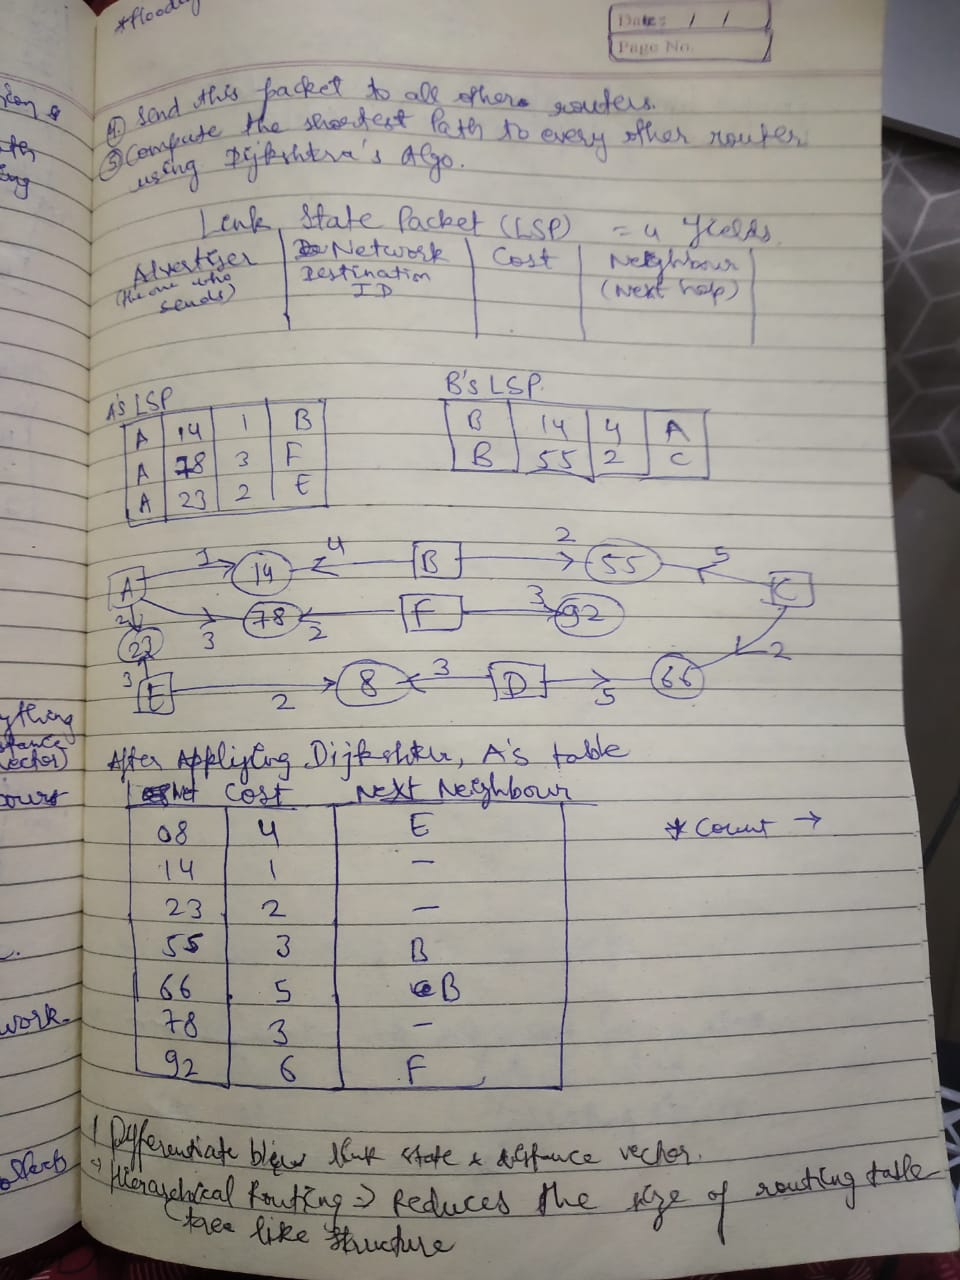 *flooding
Date: / /
Page No.
④ Send this packet to all other routers.
⑤ Compute the shortest Path to every other router
using Dijkshtra's Algo.
Link State Packet (LSP) = 4 fields
Advertiser
(the one who
sends)
Network
Destination
ID
Cost
Neighbour
(Next hop)
A's LSP
A 14 1 B
A 78 3 F
A 23 2 E
B's LSP
B 14 4 A
B 55 2 C
A 1 14 4 B 2 55 5 C
2 3 78 2 F 3 92
23
3 E 2 8 3 D 5 66 2
After Applying Dijkshtra, A's table
Net Cost Next Neighbour
08 4 E
14 1 —
23 2 —
55 3 B
66 5 B
78 3 —
92 6 F
* Count →
Differentiate b/w link state & distance vector.
→ Hierarchical Routing => Reduces the size of routing table
tree like structure